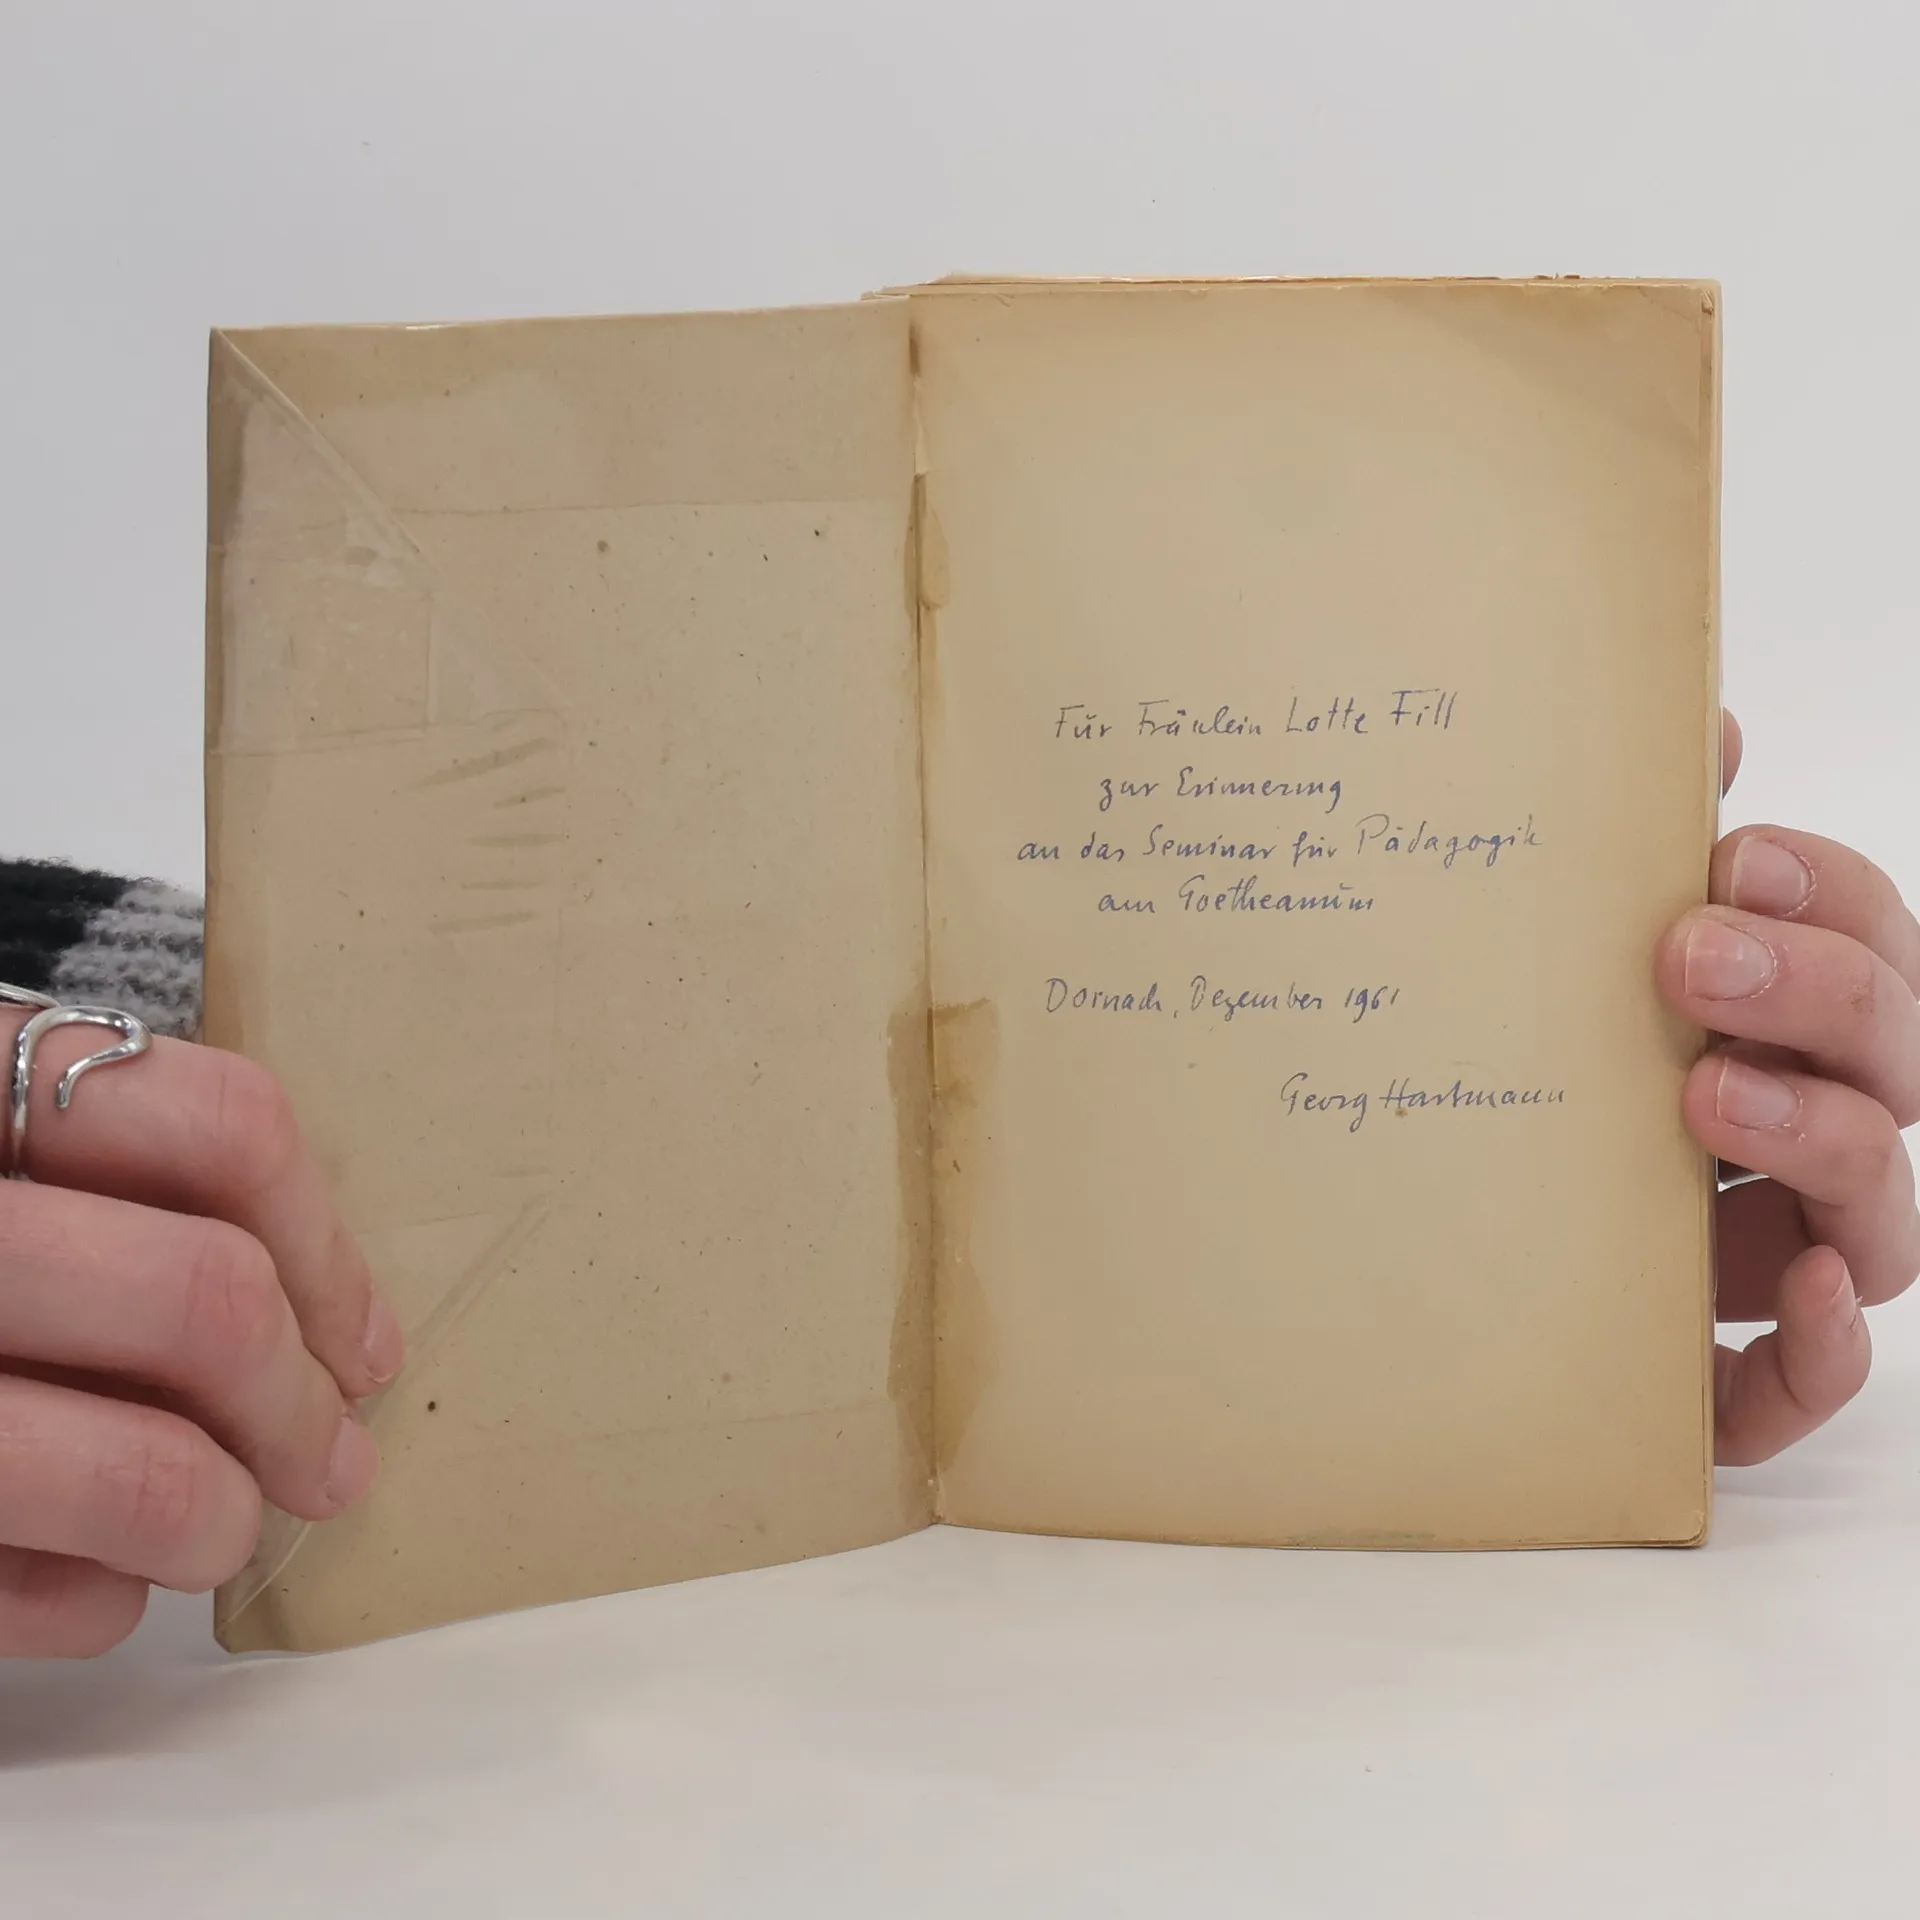 Für Fräulein Lotte Fill
zur Erinnerung
an das Seminar für Pädagogik
am Goetheanum
Dornach, Dezember 1961
Georg Hartmann